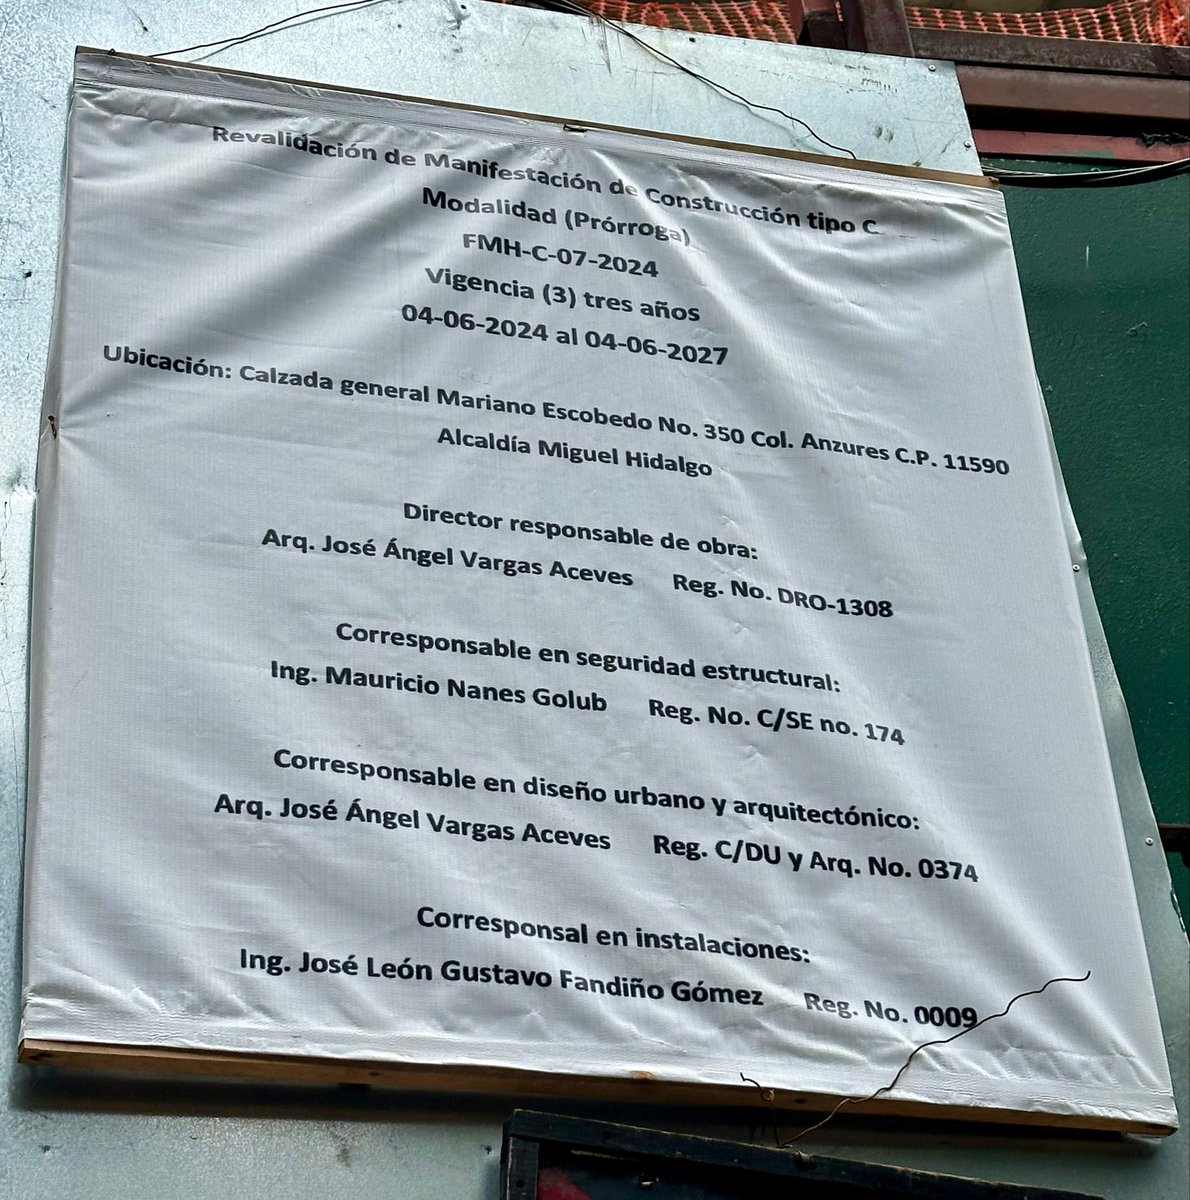 Revalidación de Manifestación de Construcción tipo C
Modalidad (Prórroga)
FMH-C-07-2024
Vigencia (3) tres años
04-06-2024 al 04-06-2027
Ubicación: Calzada general Mariano Escobedo No. 350 Col. Anzures C.P. 11590
Alcaldía Miguel Hidalgo
Director responsable de obra:
Arq. José Ángel Vargas Aceves Reg. No. DRO-1308
Corresponsable en seguridad estructural:
Ing. Mauricio Nanes Golub Reg. No. C/SE no. 174
Corresponsable en diseño urbano y arquitectónico:
Arq. José Ángel Vargas Aceves Reg. C/DU y Arq. No. 0374
Corresponsal en instalaciones:
Ing. José León Gustavo Fandiño Gómez Reg. No. 0009